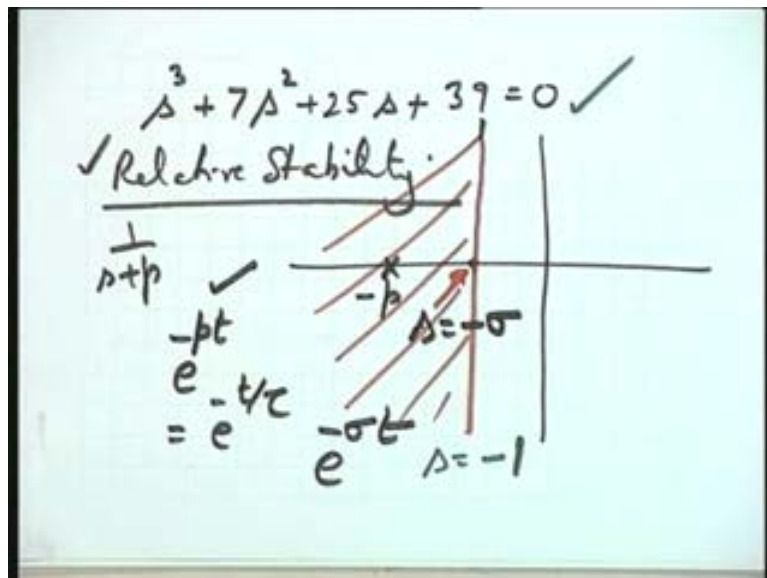 s³ + 7s² + 25s + 39 = 0 ✓
✓ Relative Stability.
1/(s+p) ✓
-p
s = -σ
e^(-pt)
= e^(-t/τ)
e^(-σt)
s = -1